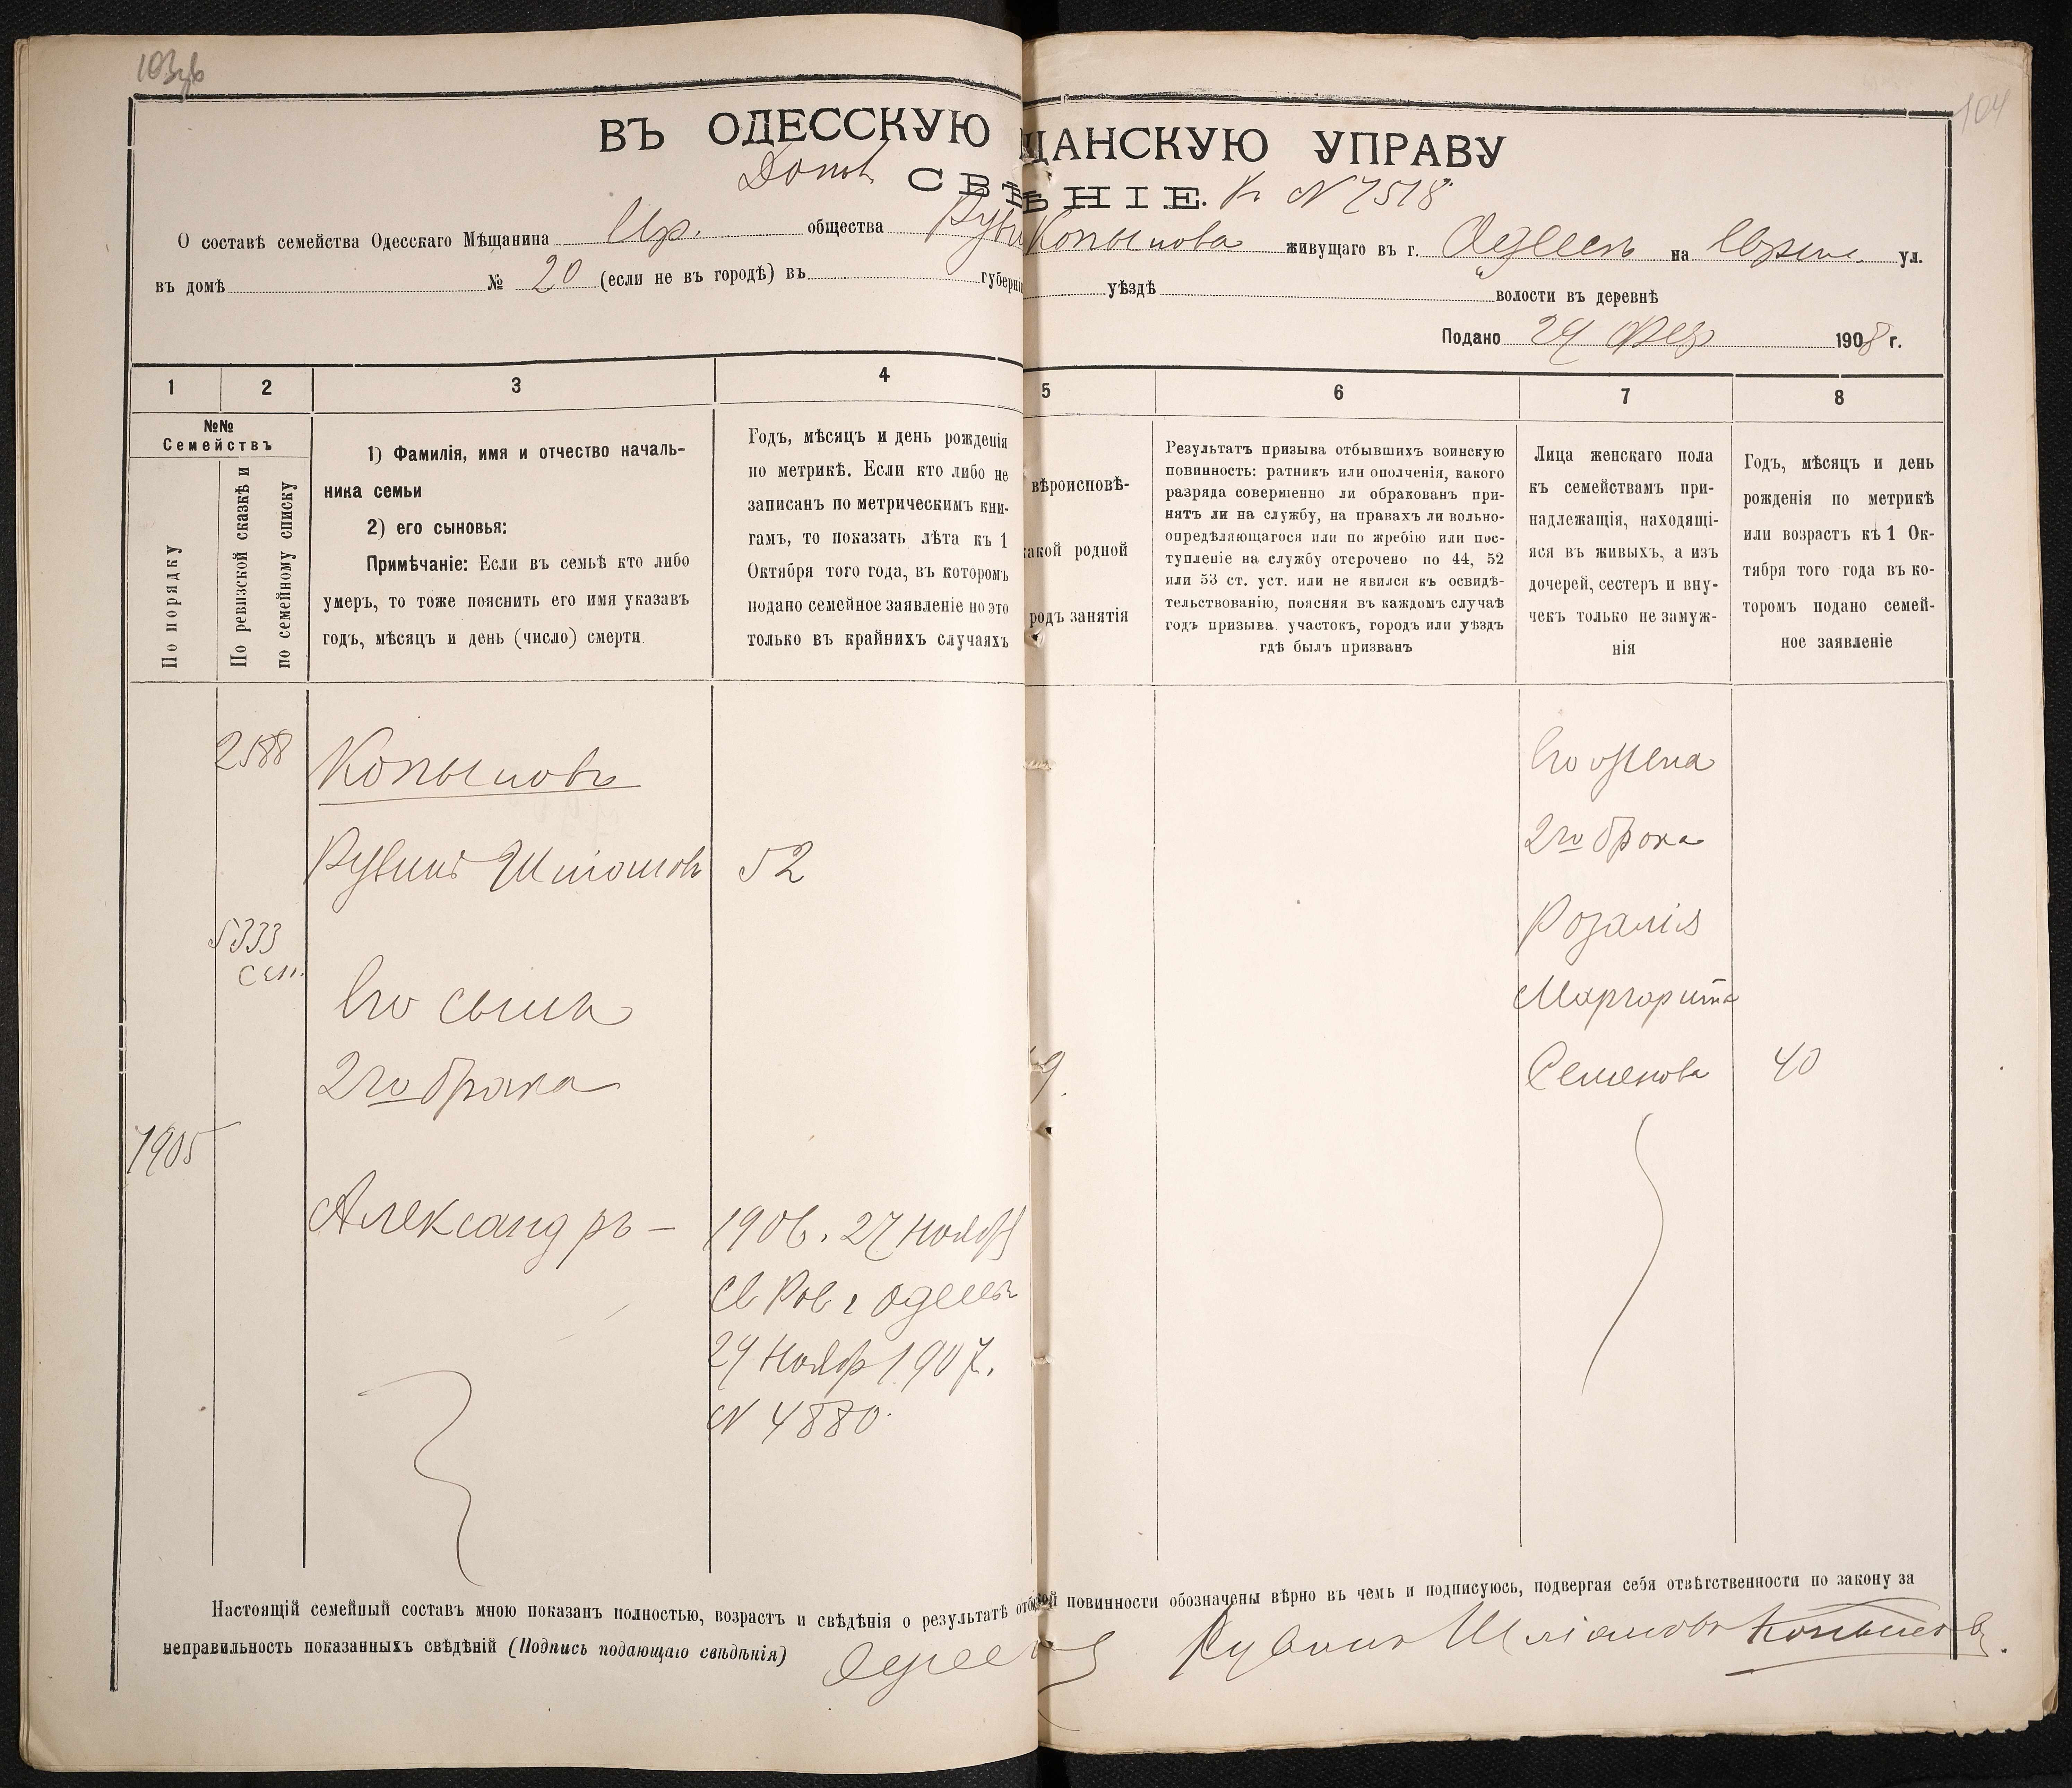 104
ВЪ ОДЕССКУЮ ЩАНСКУЮ УПРАВУ
Допол СВѢ ѢНІЕ. К N 7518
О составѣ семейства Одесскаго Мѣщанина Евр. общества Руви Копылова живущаго въ г. Одессѣ на ул.
въ домѣ № 20 (если не въ городѣ) въ губерні уѣздѣ волости въ деревнѣ
Подано 24 Фев 1908 г.
1 2 3 4 5 6 7 8
№№
Семействъ
По порядку
По ревизской сказкѣ и
по семейному списку
1) Фамилія, имя и отчество началь-
ника семьи
2) его сыновья:
Примѣчаніе: Если въ семьѣ кто либо
умеръ, то тоже пояснить его имя указавъ
годъ, мѣсяцъ и день (число) смерти
Годъ, мѣсяцъ и день рожденія
по метрикѣ. Если кто либо не
записанъ по метрическимъ кни-
гамъ, то показать лѣта къ 1
Октября того года, въ которомъ
подано семейное заявленіе но это
только въ крайнихъ случаяхъ
вѣроисповѣ-
акой родной
родъ занятія
Результатъ призыва отбывшихъ воинскую
повинность: ратникъ или ополченія, какого
разряда совершенно ли обракованъ при-
нятъ ли на службу, на правахъ ли вольно-
опредѣляющагося или по жребію или пос-
тупленіе на службу отсрочено по 44, 52
или 53 ст. уст. или не явился къ освидѣ-
тельствованію, поясняя въ каждомъ случаѣ
годъ призыва. участокъ, городъ или уѣздъ
гдѣ былъ призванъ
Лица женскаго пола
къ семействамъ при-
надлежащія, находящі-
яся въ живыхъ, а изъ
дочерей, сестеръ и вну-
чекъ только не замуж-
нія
Годъ, мѣсяцъ и день
рожденія по метрикѣ
или возрастъ къ 1 Ок-
тября того года въ ко-
торомъ подано семей-
ное заявленіе
2588
Копыловъ
Рувинъ Шліомовъ 52
5333
сем.
Его сынъ
2го брака
1905
Александръ — 1906. 27 Ноябр
Св Рав г Одессы
24 Ноябр 1907.
N 4880.
Его жена
2го брака
Розалія
Маргарита
Семенова 40
Настоящій семейный составъ мною показанъ полностью, возрастъ и свѣдѣнія о результатѣ отб ой повинности обозначены вѣрно въ чемъ и подписуюсь, подвергая себя отвѣтственности по закону за
неправильность показанныхъ свѣдѣній (Подпись подающаго свѣдѣнія)
Рувинъ Шліомовъ Копыловъ.